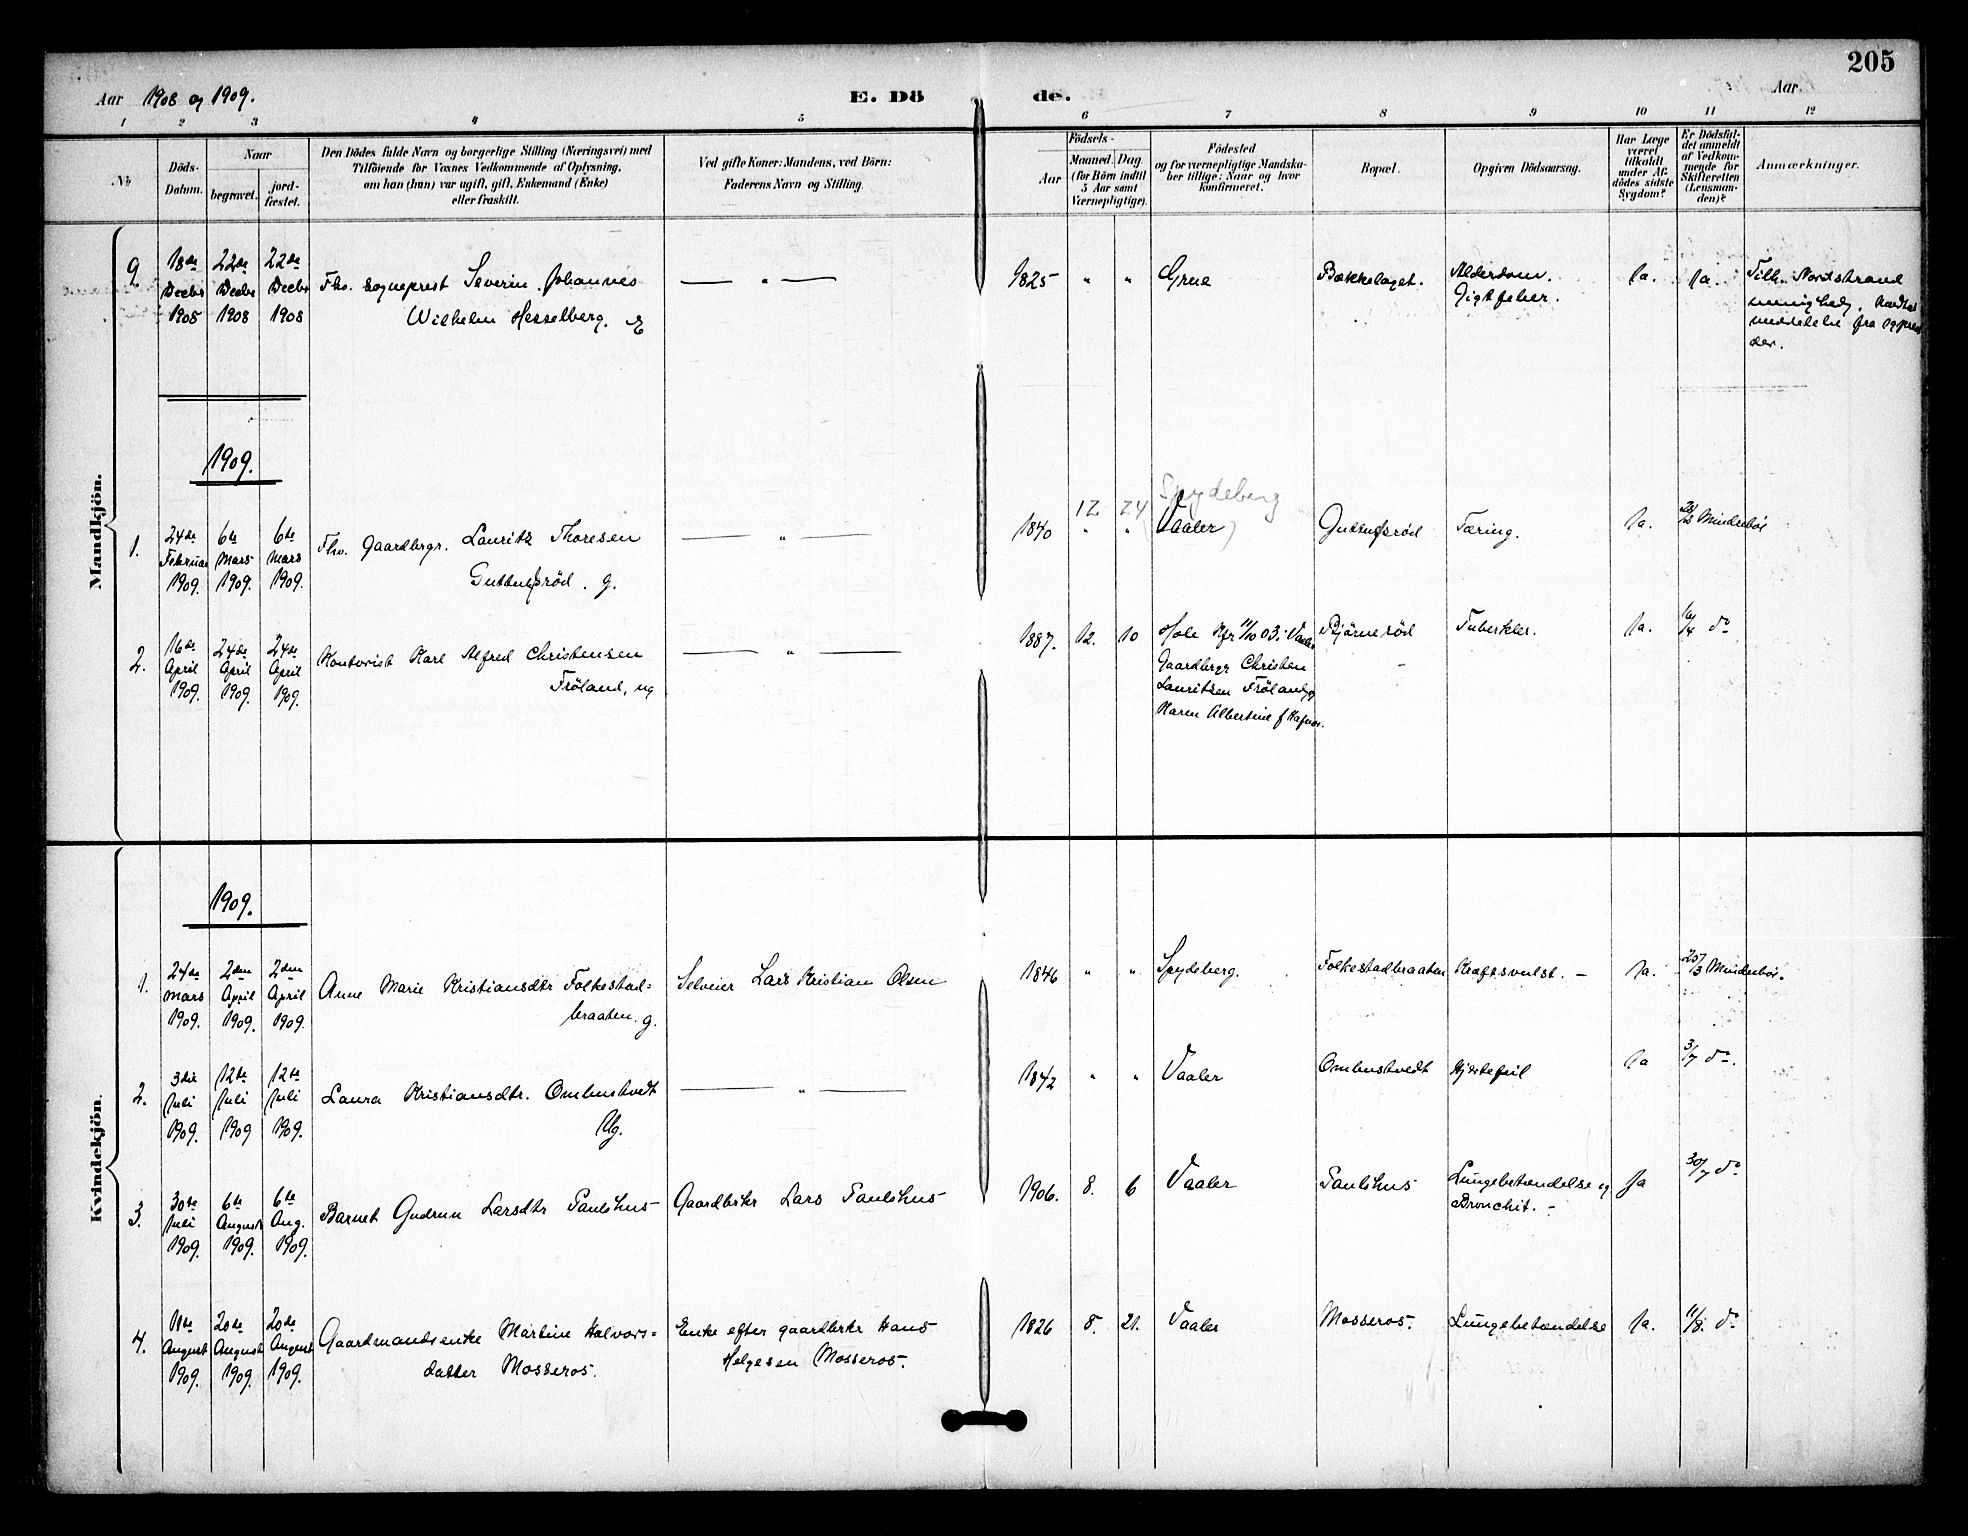 205
Aar 1908 og 1909.
E. Dö de.
Aar
1 2 3 4 5 6 7 8 9 10 11 12
No
Döds-Datum.
Naar
begravet.
jord-fæstet.
Den Dödes fulde Navn og borgerlige Stilling (Næringsvei) med
Tilföiende for Voxnes Vedkommende af Oplysning,
om han (hun) var ugift, gift, Enkemand (Enke)
eller fraskilt.
Ved gifte Koner: Mandens, ved Börn:
Faderens Navn og Stilling.
Födsels-
Aar
Maaned. Dag.
(for Börn indtil
5 Aar samt
Værnepligtige).
Födested
og for værnepligtige Mandska-
ber tillige: Naar og hvor
konfirmeret.
Bopæl.
Opgiven Dödsaarsag.
Har Læge
været
tilkaldt
under Af-
dödes sidste
Sygdom?
Er Dödsfal-
det anmeldt
af Vedkom-
mende for
Skifteretten
(Lensman-
den)?
Anmærkninger.
Mandkjön.
9. 18de Decbr 1908 22de Decbr 1908 22de Decbr 1908 Fhv. sogneprest Severin Johannes
Wilhelm Hesselberg. E
— " — 1825 " " Grue Bækkelaget. Alderdom.
Gigtfeber.
Ja. Ja. Tilh. Nordstrand
menighed,
meddelelse fra
1909.
1. 24de Februar 1909. 6te Mars 1909. 6te Mars 1909. Fhv. Gaardbrgr. Lauritz Thoresen
Guttulfsrød. g.
— " — 1840 12. 24 " " Spydeberg
(Vaaler) Guttulfsrød Tæring. Ja. Minderbøe
2. 16de April 1909. 24de April 1909. 24de April 1909. Kontorist Karl Alfred Christensen
Frøland, ug
— " — 1887. 12. 10 Hole Kfr 11/10 03 i Vaaler
Gaardbrgr Christen
Lauritsen Frøland og
Karen Albertine f
Bjørnerød Tuberkler. Ja. 16/4 do
Kvindekjön.
1909.
1. 24de Mars 1909. 2den April 1909. 2den April 1909. Anne Marie Kristiansdtr Folkestad=
braaten. g.
Selveier Lars Kristian Olsen 1846 " " Spydeberg. Folkestadbraaten Kræftsvulst. — Ja. Minderbøe.
2. 3die Juli 1909. 12te Juli 1909 12te Juli 1909. Laura Kristiansdtr. Ombustvedt
Ug.
— " — 1842 " " Vaaler Ombustvedt Hjertefeil Ja 3/7 do.
3. 30te Juli 1909. 6te August 1909. 6te Aug. 1909. Barnet Gudrun Larsdtr Paulshus Gaardbrkr Lars Paulshus 1906. 8. 6 Vaaler Paulshus Lungebetændelse og
Bronchit. —
Ja 30/7 do
4. 11te August 1909. 20de August 1909. 20de August 1909. Gaardmandsenke Martine Halvors=
datter Mosseros.
Enke efter gaardbrkr Hans
Helgesen Mosseros.
1826 8. 21. Vaaler Mosseros. Lungebetændelse Ja. 11/8. do